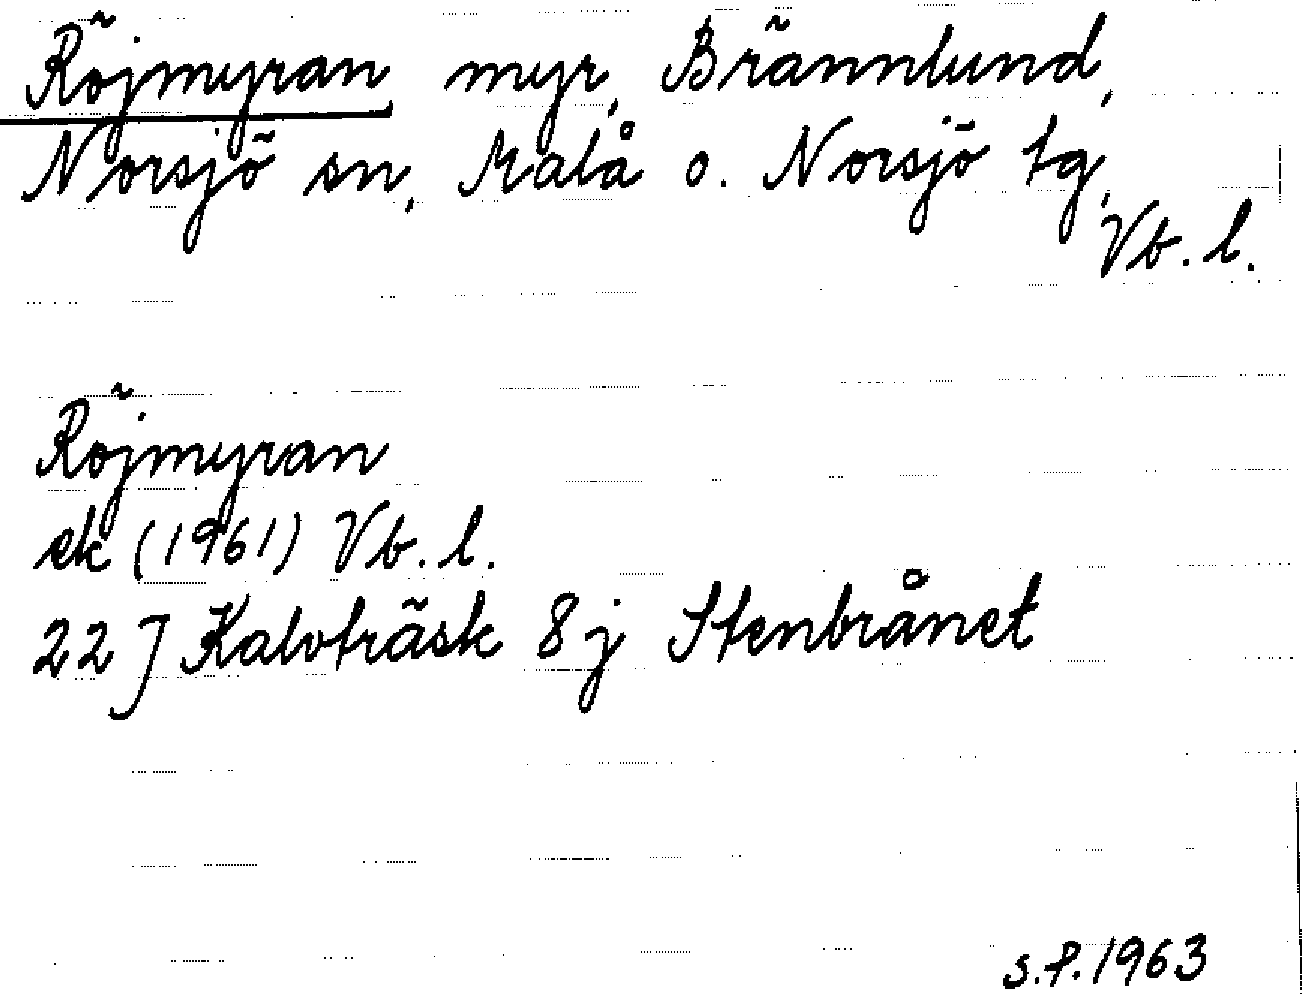 Röjmyran, myr, Brännlund,
Norsjö sn, Malå o. Norsjö tg,
Vb. l.
Röjmyran
ek (1961) Vb. l.
22 J Kalvträsk 8 j Stenbrånet
s.f. 1963